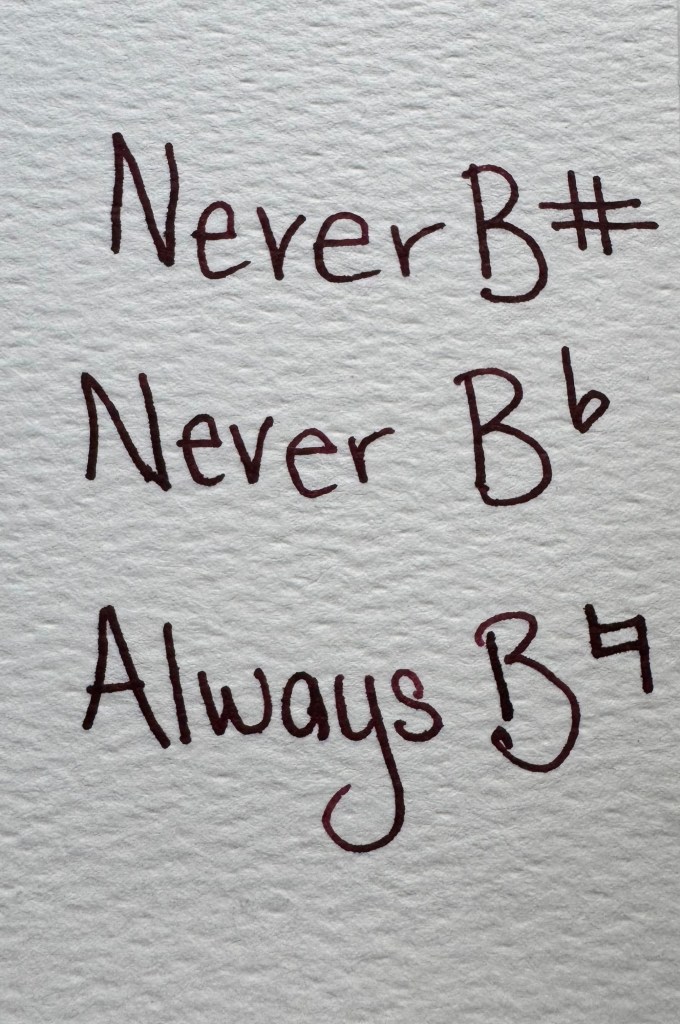 Never B#
Never B♭
Always B♮